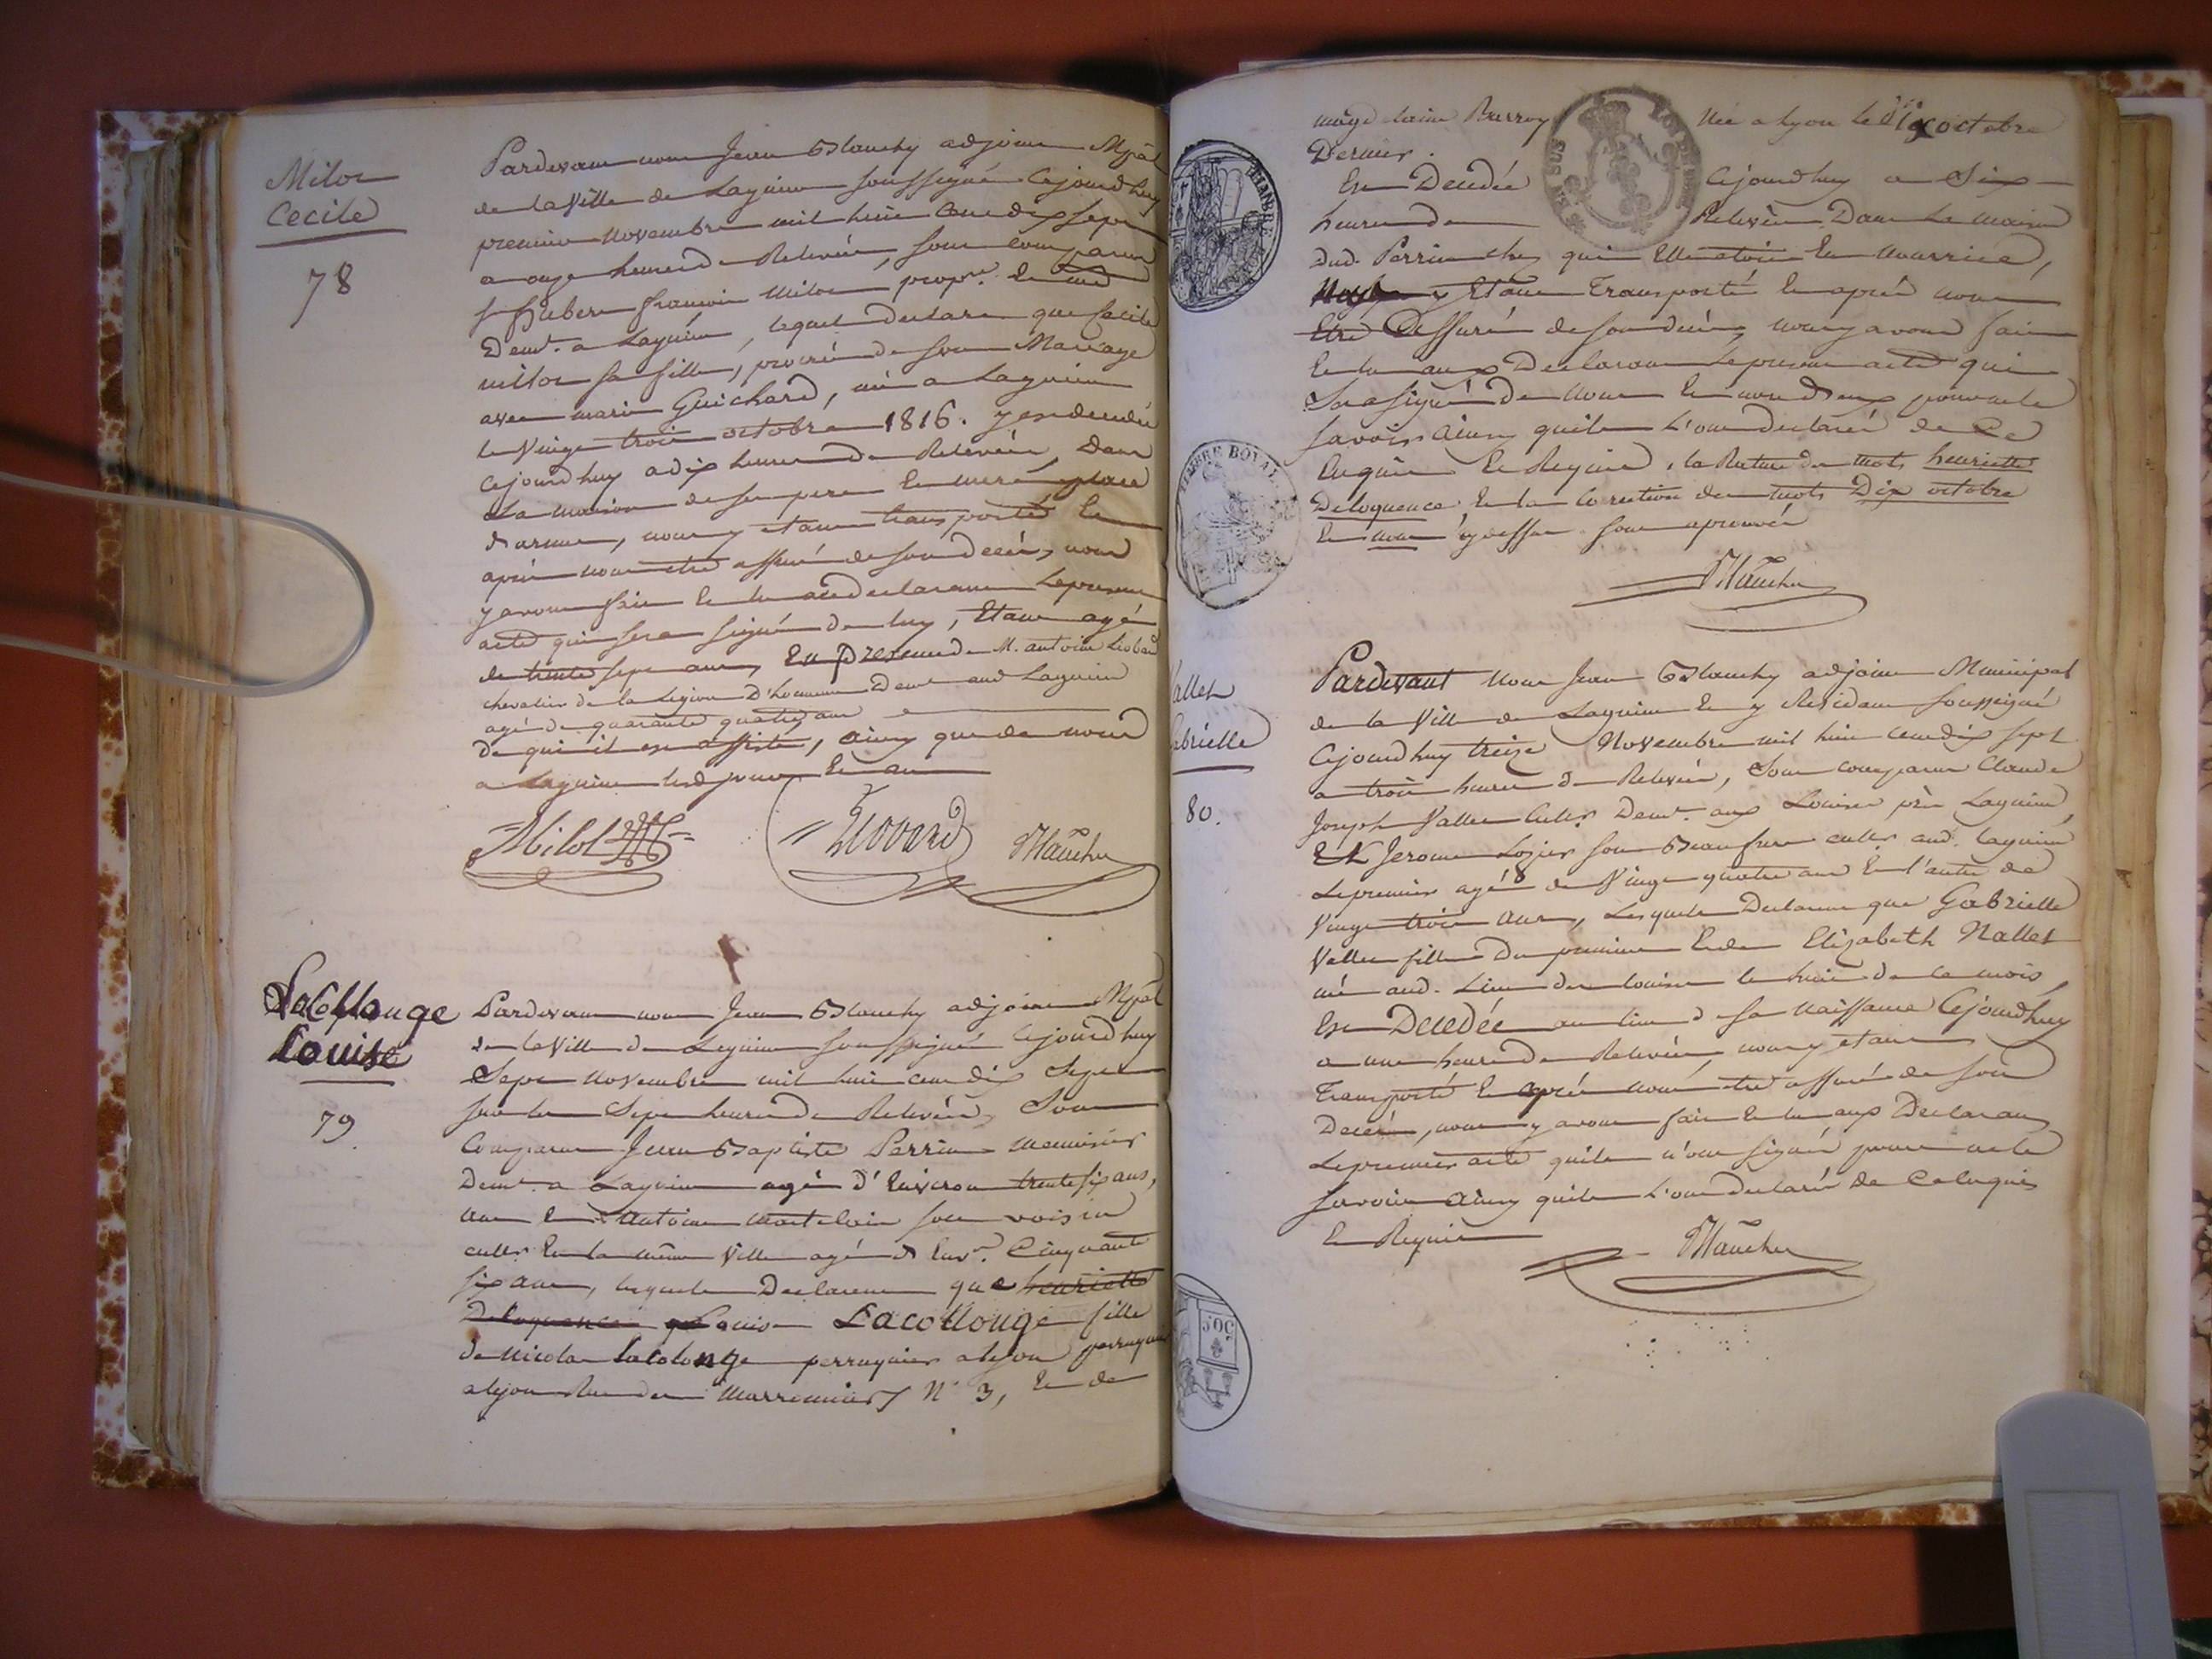 Milot
Cecile
78
Pardevant nous Jean Blanchy adjoint Mpal
de la Ville de Lagnieu soussigné Cejourdhuy
premier novembre mil huit Cent dix sept
a onze heures de Relevée, sont comparu
françois Milot propre.
Demt. a Lagnieu, lequel declare que Cecile
milot sa fille, procréée de son Mariage
avec marie Guichard, née a Lagnieu
le Vingt trois octobre 1816. y est decedée
Cejourdhuy a dix heures de Relevée, Dans
La maison de son pere place
d'armes, nous y etant transporté et
après nous etre assuré de son decès, nous
y avons fait et lu au declarant Le present
acte qui sera signé de luy, Etant agé
de trente sept ans, En presence de M. antoine Liobard
chevalier de la Legion D'honneur Demt. aud Lagnieu
agé de quarante quatre ans
de qui il est assisté, ainsy que de nous
a Lagnieu lesd jour et an
Milot Liobard Blanchy
Lacollonge
Louise
79
Pardevant nous Jean Blanchy adjoint Mpal
de la Ville de Lagnieu soussigné Cejourdhuy
Sept novembre mil huit cent dix Sept
sur les Sept heures de Relevée, Sont
Comparu Jean Baptiste Perrin menuisier
Demt. a Lagnieu agé d'Environ trente six ans,
Antoine son voisin
cultr. en la même Ville agé d'Envn. Cinquante
six ans, lesquels Declarent que henriette
Deloquence Louise Lacollonge fille
de Nicolas Lacolonge perruquier a Lyon
a Lyon Rue des Marronniers N° 3, et de
née a Lyon le Dix octobre
Dernier.
Est Decedée Cejourdhuy a Six
heures de Relevée Dans La maison
dud. Perrin chez qui Elle etoit En nourrice,
y Etant Transporté et après nous
Etre assuré de son decès, nous y avons fait
et lu aux Declarants Le present acte qui
Sera signé de nous et non d'eux pour ne le
savoir ainsy qu'ils L'ont declaré de Ce
Enquis et Requis. la Rature des mots henriette
Deloquence, et la Correction des mots Dix octobre
et nous cy dessus sont aprouvés
Blanchy
Vallet
Gabrielle
80.
Pardevant nous Jean Blanchy adjoint Municipal
de la Ville de Lagnieu et y Residant soussigné
Cejourdhuy treize Novembre mil huit cent dix sept
a trois heures de Relevée, Sont comparu Claude
Joseph Vallet Cultr. Demt. aux Louises près Lagnieu,
Et Jerome Lozier son Beau frere cultr. aud. lagnieu
Le premier agé de Vingt quatre ans et l'autre de
Vingt trois ans, Lesquels Declarent que Gabrielle
Vallet fille du premier et de Elizabeth Nallet
née aud. Lieu des louises le huit de ce mois,
Est Decedée au lieu de sa naissance Cejourdhuy
a une heure de Relevée nous y etant
Transporté et après nous etre assuré de son
Decès, nous y avons fait et lu aux Declarants
Le present acte qu'ils n'ont signé pour ne le
savoir ainsy qu'ils L'ont declaré de Ce Enquis
et Requis
Blanchy
TIMBRE ROYAL
50c